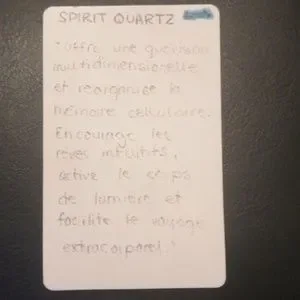 SPIRIT QUARTZ
"offre une guérison
multidimensionelle
et réorganise la
mémoire cellulaire.
Encourage les
rêves intuitifs,
active le corps
de lumière et
facilite le voyage
extracorporel."